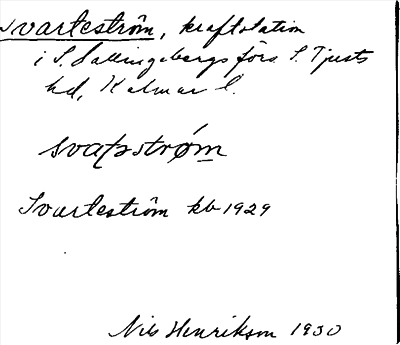 Svarteström, kraftstation
i S. Sallingebergs förs. S. Tjusts
hd, Kalmar l.
svaʈström
Svarteström kb 1929
Nils Henrikson 1930